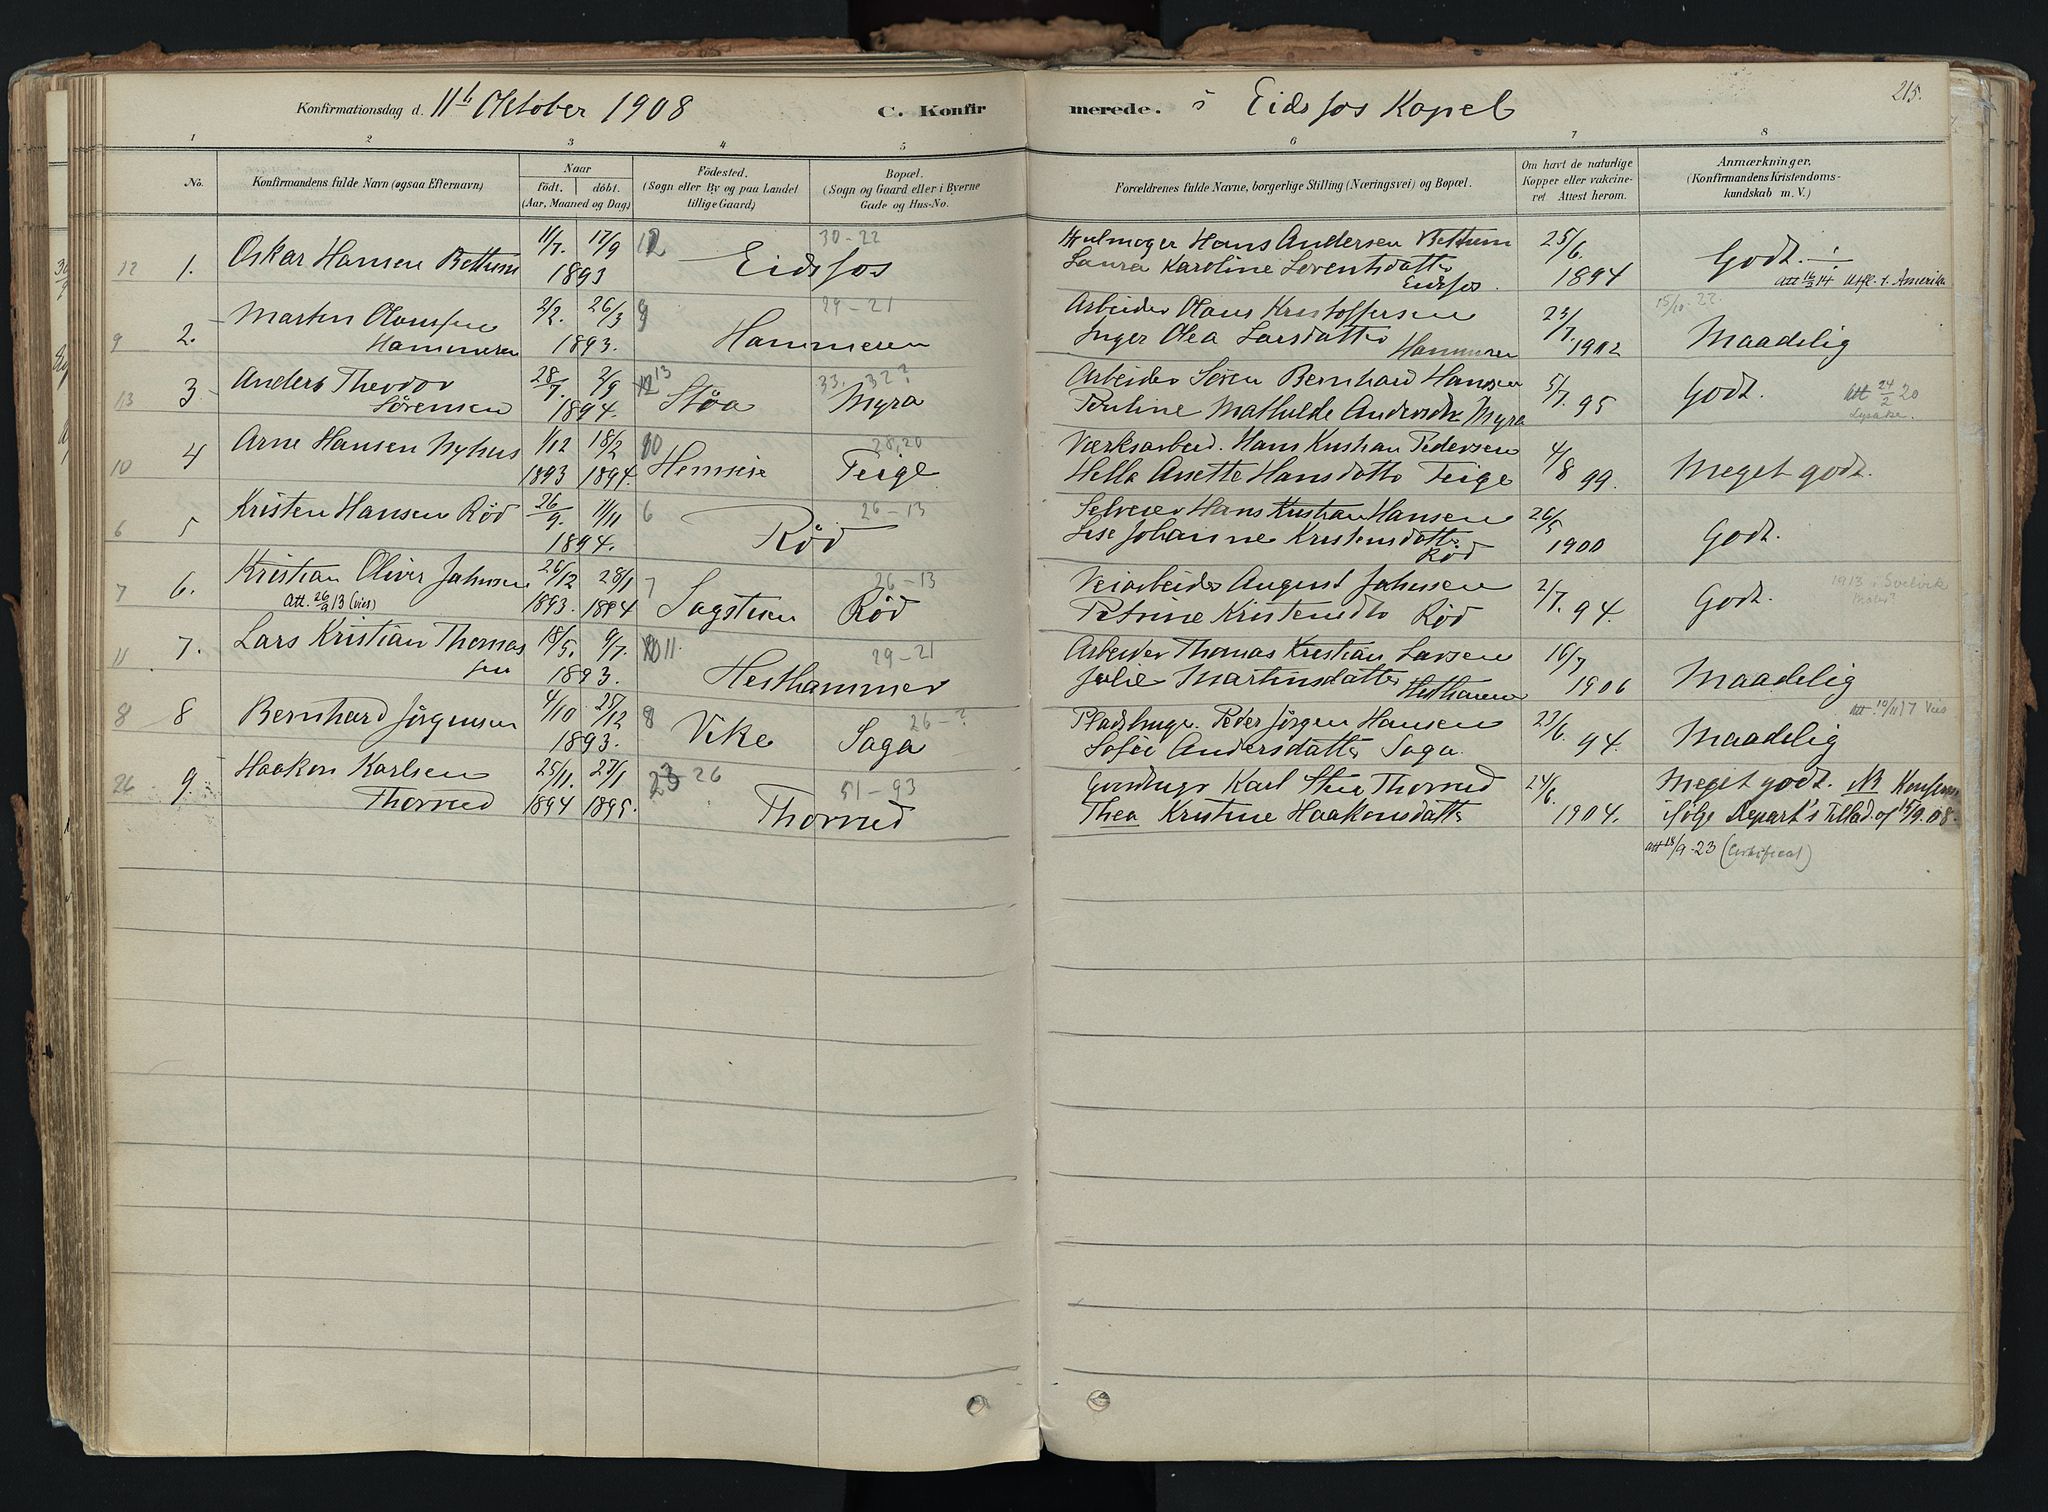 Konfirmationsdag d. 11te Oktober 1908 C. Konfirmerede. i Eidsfos Kapel
215.
1 2 3 4 5 6 7 8
No.
Konfirmandens fulde Navn (ogsaa Efternavn)
Naar
födt. döbt.
(Aar, Maaned og Dag.)
Födested.
(Sogn eller By og paa Landet
tillige Gaard)
Bopæl.
(Sogn og Gaard eller i Byerne
Gade og Hus-No.
Forældrenes fulde Navne, borgerlige Stilling (Næringsvei) og Bopæl.
Om havt de naturlige
Kopper eller vakcine-
ret Attest herom.
Anmærkninger.
(Konfirmandens Kristendoms-
kundskab m. V.)
12 1. Oskar Hansen Bettum 11/7. 17/9 12 30-22 Hjulmager Hans Andersen Bettum 25/6.
1893 Eidsfos Laura Karoline Lorentsdatter Eidsfos. 1894 Godt. ÷
Att 16/2 14 Utfl. t. Amerika
9 2. Martin Olaussen 2/2. 26/3 9 29-21 Arbeider Olaus Kristoffersen 23/7. 15/10-22.
Hammeren 1893. Hammeren Inger Olea Larsdatter Hammeren 1902 Maadelig
13 3. Anders Theodor 28/7 2/9 13 33. 32? Arbeider Søren Bernhard Hansen 5/7. 95 Godt. Att 24/2 20
Sørensen 1894. Støa Myra Pauline Mathilde Andersdtr Myra Lysaker.
10 4 Arne Hansen Nyhus 1/12 18/2 10 28,20 Værksarbeid. Hans Kristian Pedersen 4/8 99.
1893 1894. Hemseie Teige Hella Anette Hansdatter Teige Meget godt.
6 5 Kristen Hansen Rød 26/9. 11/11 6 26-13 Selveier Hans Kristian Hansen 26/5
1894. Rød Lise Johanne Kristensdatter Rød 1900 Godt.
7 6. Kristian Oliver Jahnsen 26/12 28/1 7 26-13 Veiarbeider August Jahnsen 2/7. 94. 1913 i Svelvik
Att. 26/9 13 (vies) 1893. 1894 Sagstuen Rød Petrine Kristensdtr Rød Godt.
11 7. Lars Kristian Thomas 18/5. 9/7. 11. 29-21 Arbeider Thomas Kristian Larsen 16/7
sen 1893. Hesthammer Julie Martinsdatter Hesthamer 1906 Maadelig
8 8 Bernhard Jørgensen 4/10 25/12 8 26-? Pladsbruger Peder Jørgen Hansen 23/6. Att. 10/11 17 Vies
1893. Vike Saga Sofie Andersdatter Saga. 94. Maadelig
26 9. Haakon Karlsen 25/11. 27/1 23 26 51-93 Gaardbruger Karl Thorrud 24/6. Meget godt. NB Konfirm
Thorrud 1894 1895. Thorrud Thea Kristine Haakonsdatter 1904. ifølge Depart's Tillad. af 15/9.08.
Att 18/9-23 (Certificat)